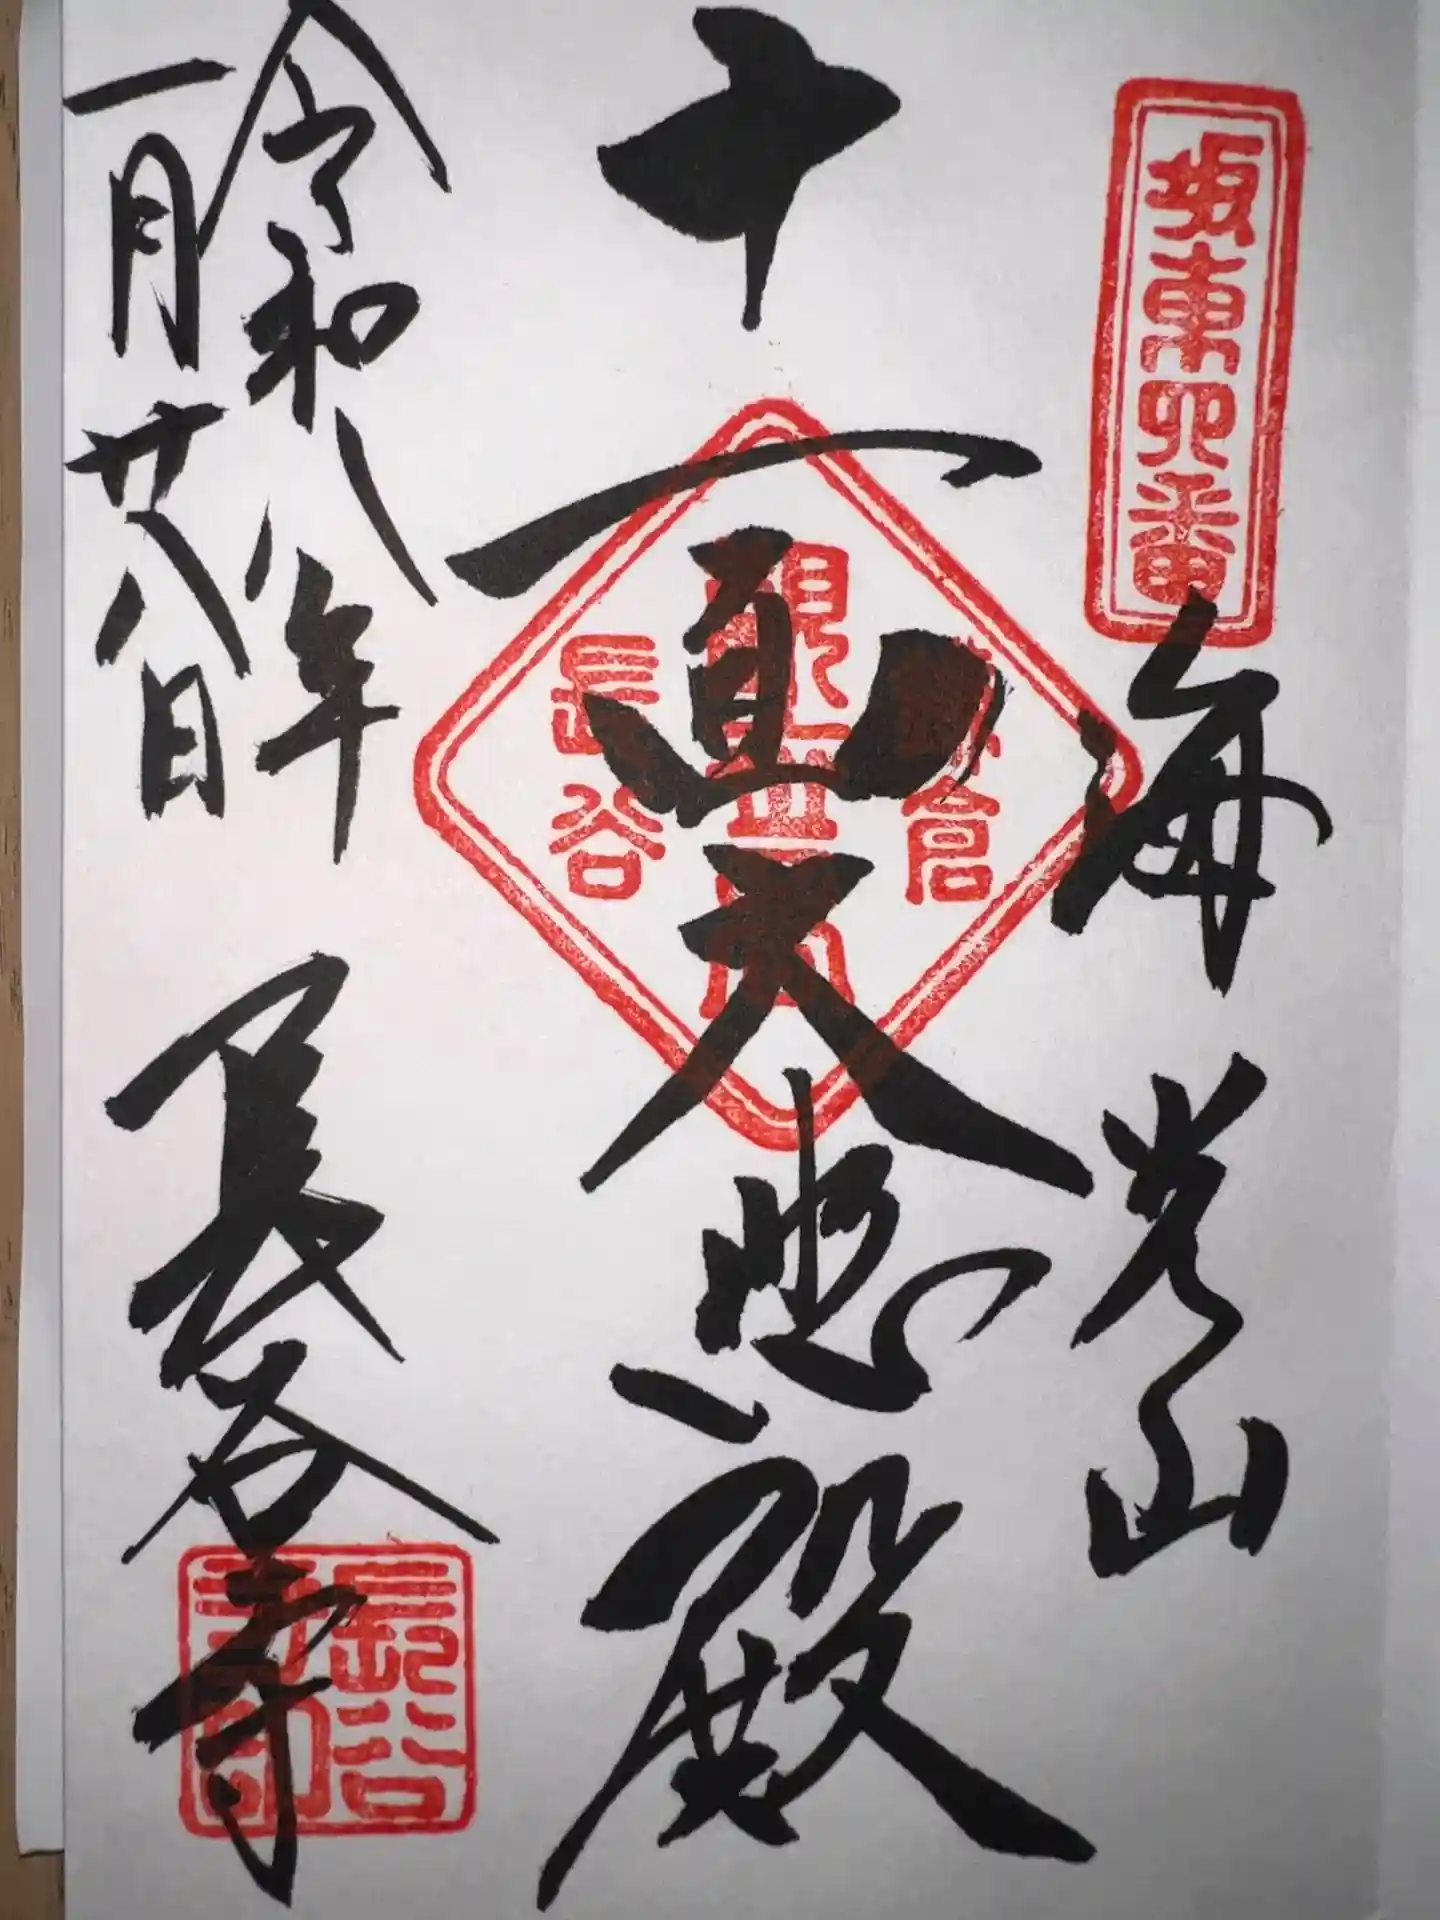 坂東四番
海光山
十一面大悲殿
鎌倉
観世音
長谷
令和八年
一月廿八日
長谷寺
長谷寺印